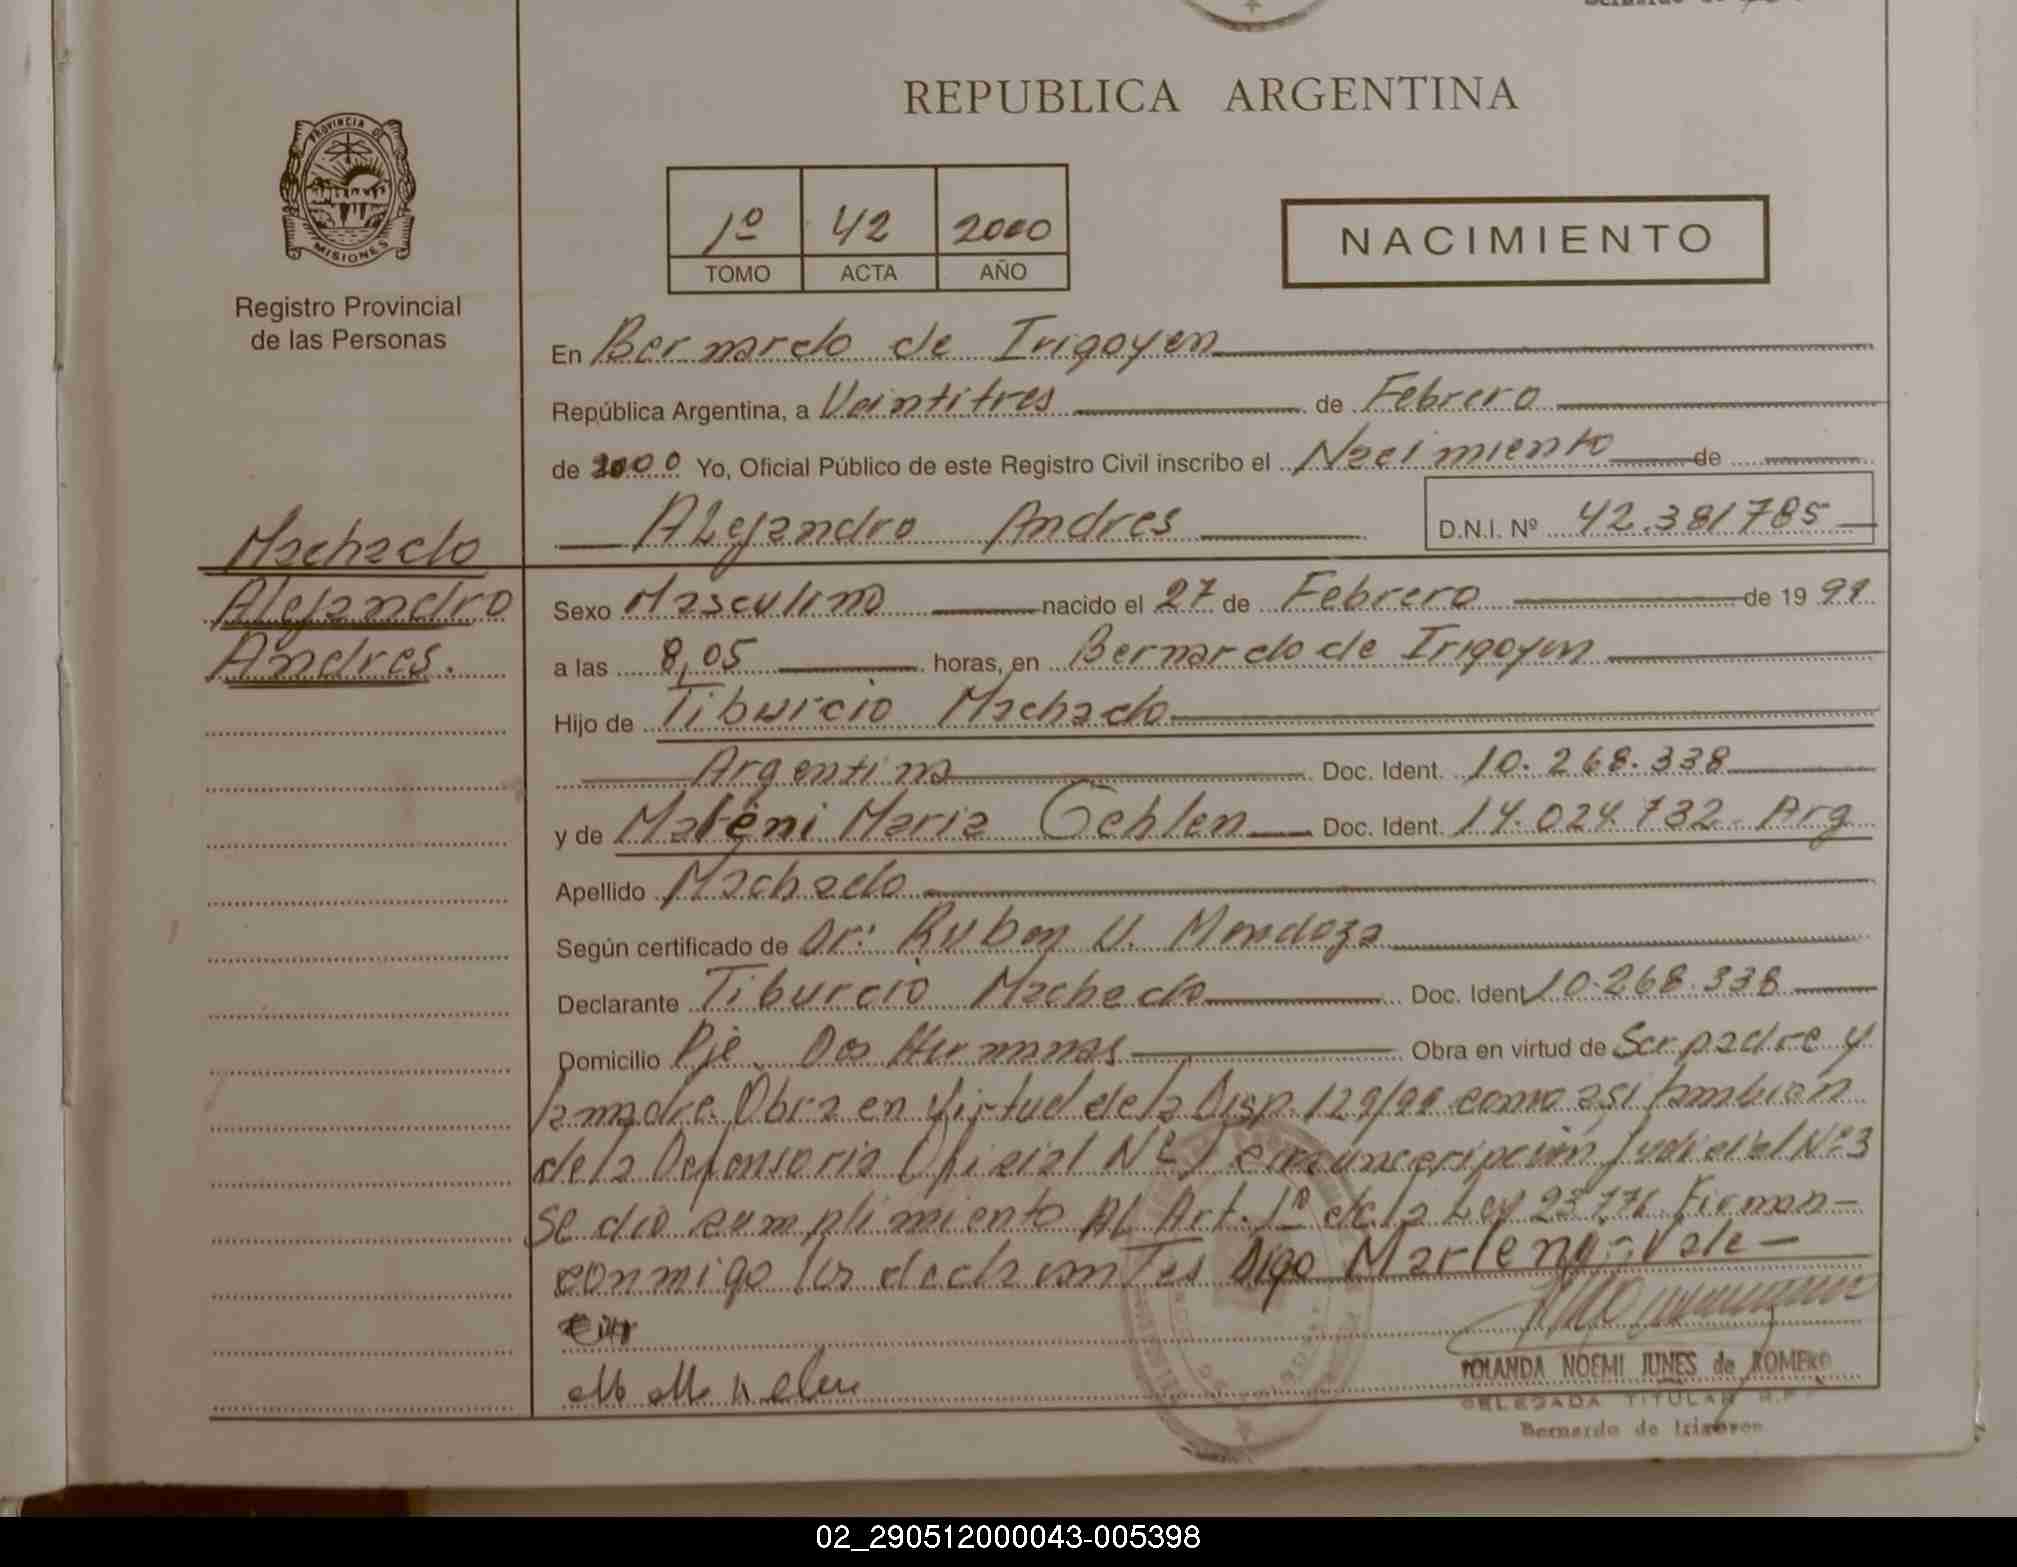 REPUBLICA ARGENTINA
PROVINCIA DE
MISIONES
Registro Provincial
de las Personas
1º 42 2000
TOMO ACTA AÑO
NACIMIENTO
En Bernardo de Irigoyen
República Argentina, a Veintitres de Febrero
de 2000 Yo, Oficial Público de este Registro Civil inscribo el Nacimiento de
Alejandro Andres D.N.I. Nº 42.381785
Machado
Alejandro
Andres.
Sexo Masculino nacido el 27 de Febrero de 19 99
a las 8,05 horas, en Bernardo de Irigoyen
Hijo de Tiburcio Machado
Argentino Doc. Ident. 10.268.338
y de Maria Gehlen Doc. Ident. 14.024.732 Arg
Apellido Machado
Según certificado de Dr: Ruben U. Mendoza
Declarante Tiburcio Machado Doc. Ident 10.268.338
Domicilio Pje. Dos Hermanas Obra en virtud de Ser padre y
la madre. Obra en virtud de la Disp. 129/99 como asi tambien
de la Defensoria Oficial Nº 1 circunscripción Judicial Nº 3
se dio cumplimiento AL Art. 1º de la Ley 23776 Firman
conmigo los declarantes Digo Marleni - Vale -
YOLANDA NOEMI JUNES de ROMERO
DELEGADA TITULAR R.P.
Bernardo de Irigoyen
02_290512000043-005398